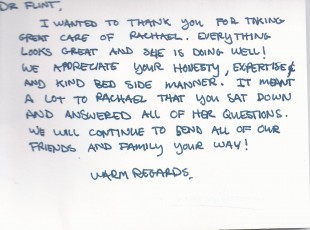 DR FLINT,
I WANTED TO THANK YOU FOR TAKING
GREAT CARE OF RACHAEL. EVERYTHING
LOOKS GREAT AND SHE IS DOING WELL!
WE APPRECIATE YOUR HONESTY, EXPERTISE,
AND KIND BED SIDE MANNER. IT MEANT
A LOT TO RACHAEL THAT YOU SAT DOWN
AND ANSWERED ALL OF HER QUESTIONS.
WE WILL CONTINUE TO SEND ALL OF OUR
FRIENDS AND FAMILY YOUR WAY!
WARM REGARDS,